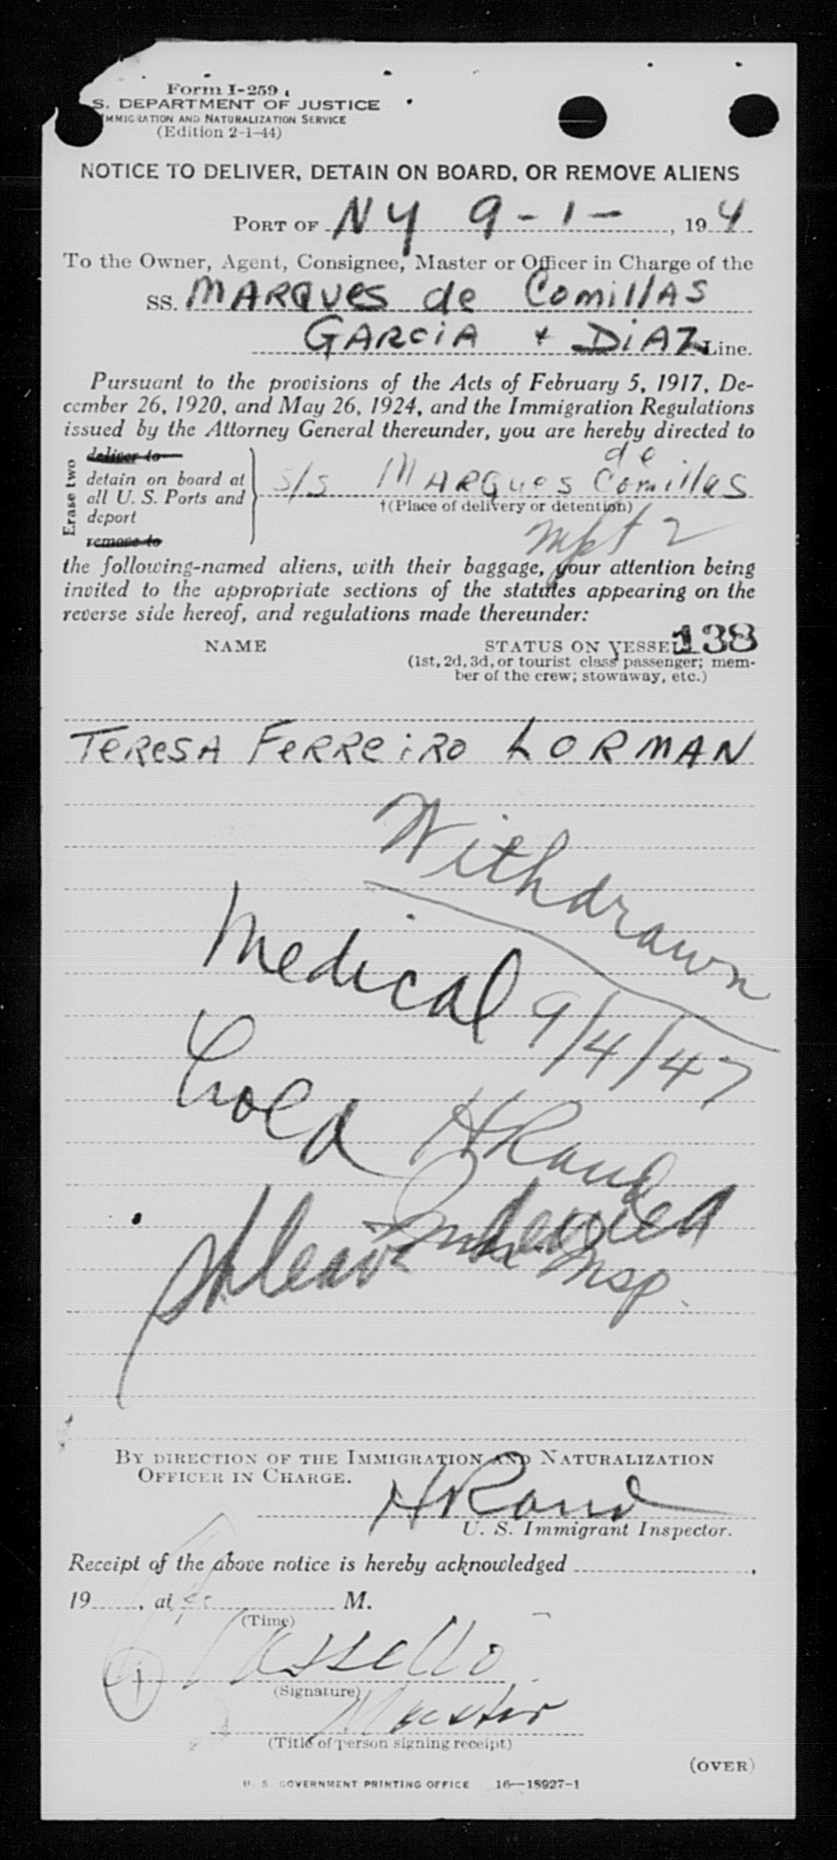 Form I-259
S. DEPARTMENT OF JUSTICE
IMMIGRATION AND NATURALIZATION SERVICE
(Edition 2-1-44)
NOTICE TO DELIVER, DETAIN ON BOARD, OR REMOVE ALIENS
PORT OF NY 9-1-, 194
To the Owner, Agent, Consignee, Master or Officer in Charge of the
SS. MARQUES de COMIllAS
GARCIA + DIAZ Line.
Pursuant to the provisions of the Acts of February 5, 1917, De-
cember 26, 1920, and May 26, 1924, and the Immigration Regulations
issued by the Attorney General thereunder, you are hereby directed to
Erase two
deliver to
detain on board at
all U. S. Ports and
deport
remove to
S/S MARQUES de Comillas
†(Place of delivery or detention)
the following-named aliens, with their baggage, your attention being
invited to the appropriate sections of the statutes appearing on the
reverse side hereof, and regulations made thereunder:
138
NAME STATUS ON VESSEL
(1st, 2d, 3d, or tourist class passenger; mem-
ber of the crew; stowaway, etc.)
TERESA FERREIRO LORMAN
Withdrawn
Medical 9/4/47
Hold HRand
Insp.
BY DIRECTION OF THE IMMIGRATION AND NATURALIZATION
OFFICER IN CHARGE.
HRand
U. S. Immigrant Inspector.
Receipt of the above notice is hereby acknowledged ,
19 , at M.
(Time)
1
(Signature)
Master
(Title of person signing receipt)
(OVER)
U. S. GOVERNMENT PRINTING OFFICE 16—18927-1